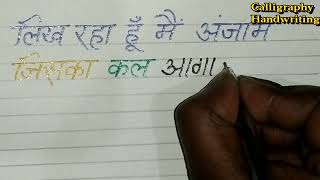 Calligraphy
Handwriting
लिख रहा हूँ मैं अंजाम
जिसका कल आगा